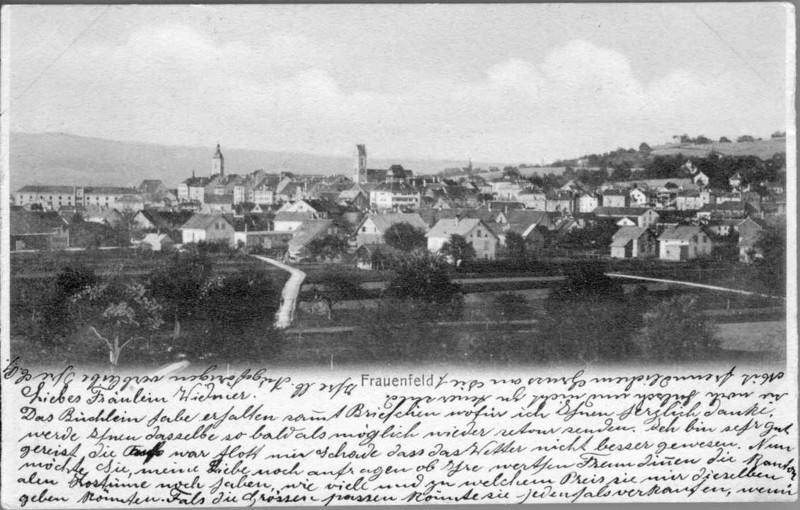 Frauenfeld
Liebes Fräulein Widmer.
Das Büchlein habe erhalten samt Briefchen wofür ich Ihnen herzlich danke,
werde Ihnen dasselbe so bald als möglich wieder retour senden. Ich bin sehr gut
gereist, die war flott nur Schade dass das Wetter nicht besser gewesen. Nun
möchte Sie, meine Liebe noch anfragen ob Ihre werthen Freundinnen die Kanton
alen Kostüme noch haben, wie viele und zu welchem Preis sie mir dieselben
geben könnten. Falls die Grössen passen könnte sie jedenfals verkaufen, wenn
sie nur hübsch und nicht zu teuer sind
Mit freundlichem Gruss an die l. Angehörigen verbleibe Ihre